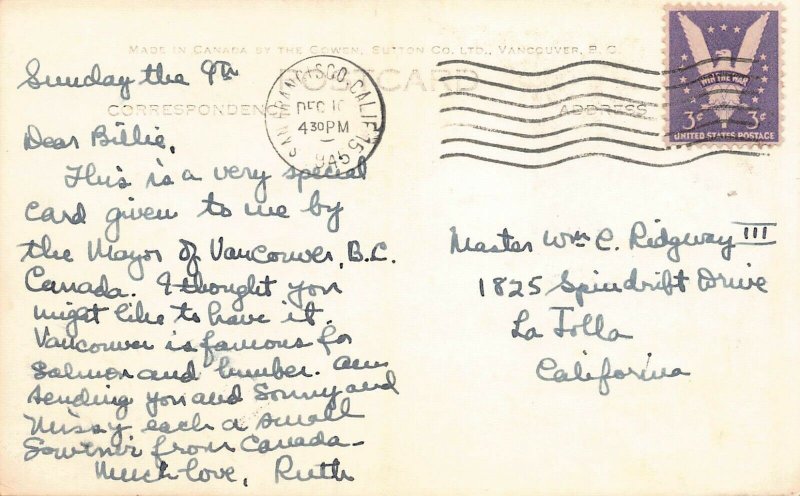 MADE IN CANADA BY THE GOWEN, SUTTON CO. LTD., VANCOUVER, B.C.
POSTCARD
CORRESPONDENCE
ADDRESS
SAN FRANCISCO, CALIF. 15
DEC 10
4 30 PM
1945
WIN THE WAR
3¢ 3¢
UNITED STATES POSTAGE
Sunday the 9th
Dear Billie,
This is a very special
card given to me by
the Mayor of Vancouver, B.C.
Canada. I thought you
might like to have it.
Vancouver is famous for
Salmon and lumber. Am
sending you and Sonny and
Missy each a small
Sovenir from Canada—
Much love, Ruth
Master Wm C. Ridgway III
1825 Spindrift Drive
La Jolla
California